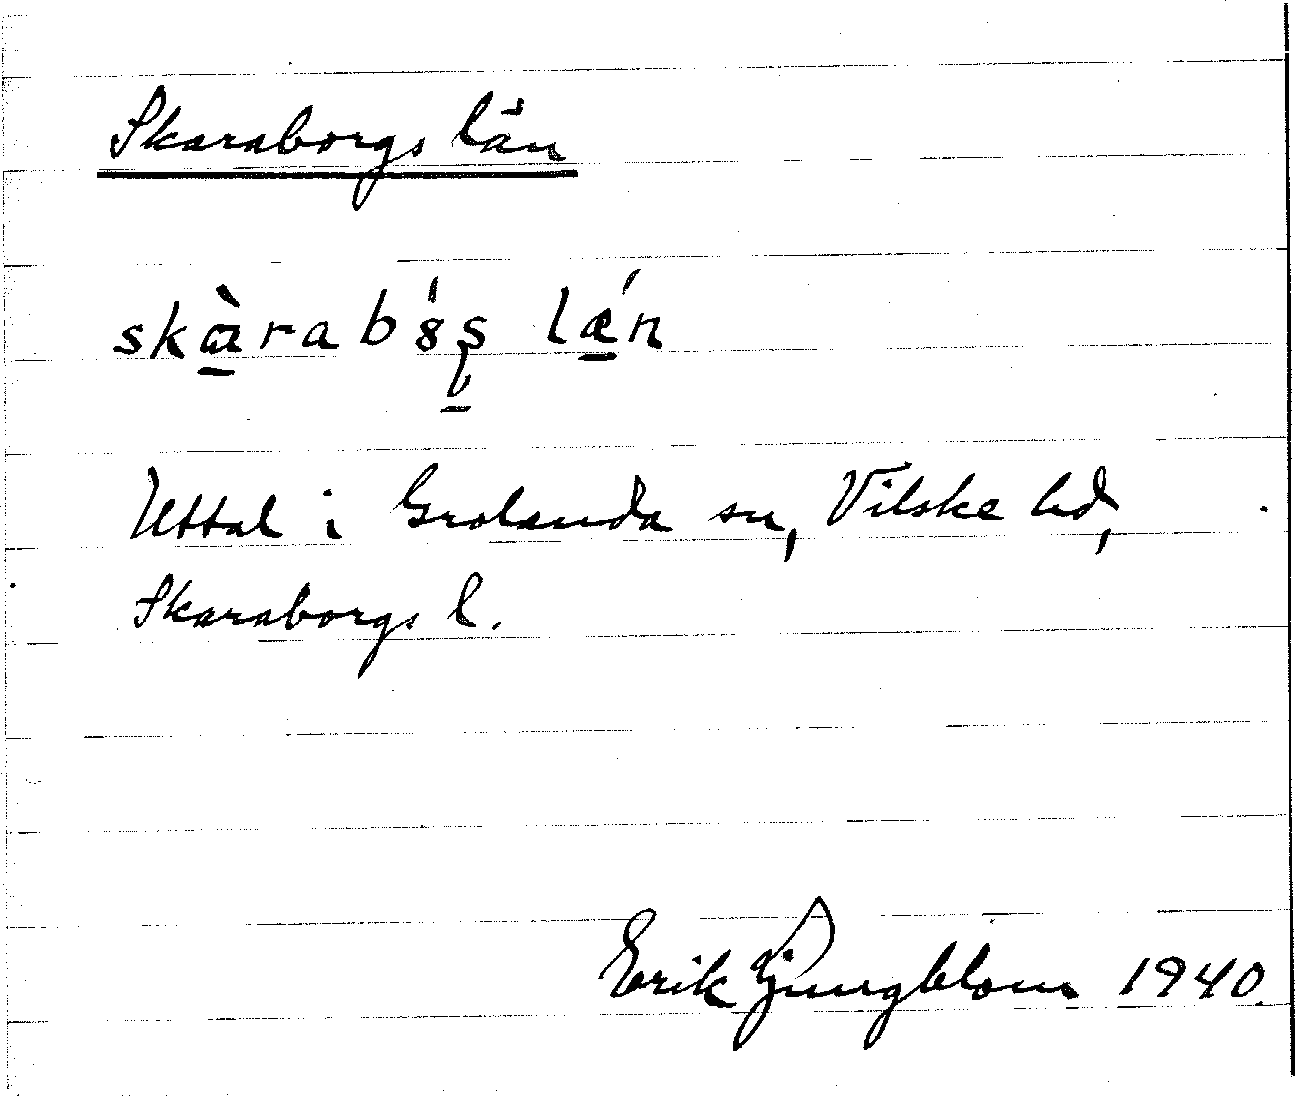 Skaraborgs län
skàrabó̤ș lǽn
Uttal i Grolanda sn, Vilske hd,
Skaraborgs l.
Erik Ljungblom 1940.